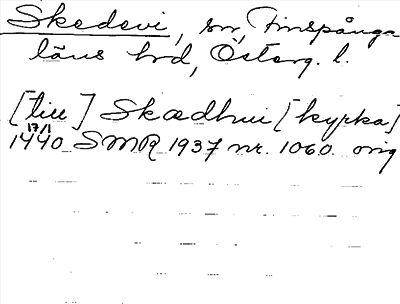 Skedevi, sn, Finspånga
läns hd, Österg. l.
[till] Skædhui [kyrka]
17/1
1440 SMR 1937 nr. 1060. orig